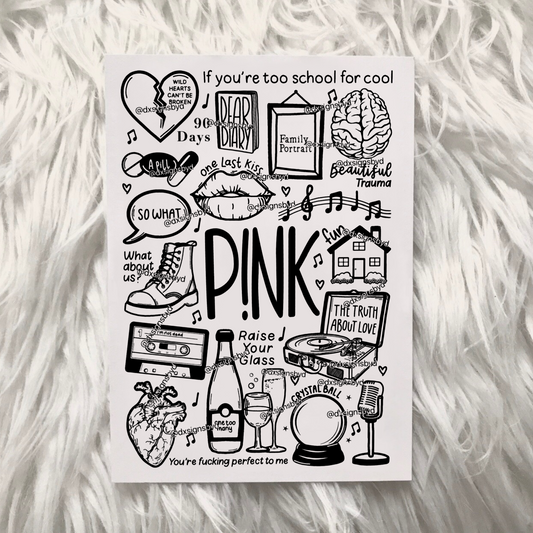 If you're too school for cool
WILD
HEARTS
CAN'T BE
BROKEN
@dxsignsbyd
90
Days
DEAR
DIARY
Family
Portrait
Beautiful
Trauma
A PILL
one last kiss
SO WHAT
What
about
us?
P!NK
fun
THE TRUTH
ABOUT LOVE
Raise
Your
Glass
one too
many
CRYSTAL BALL
You're fucking perfect to me